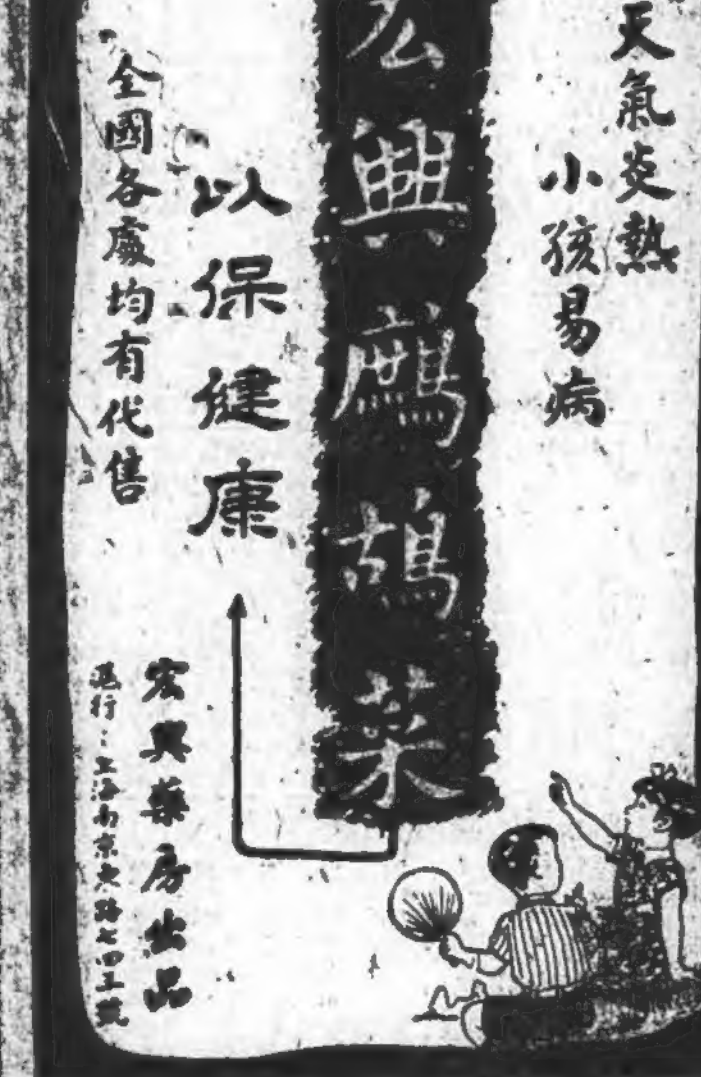 天氣炎熱
小孩易病
宏興鷓鴣菜
以保健康
全國各處均有代售
宏興藥房出品
滬行：上海南京東路七四三號